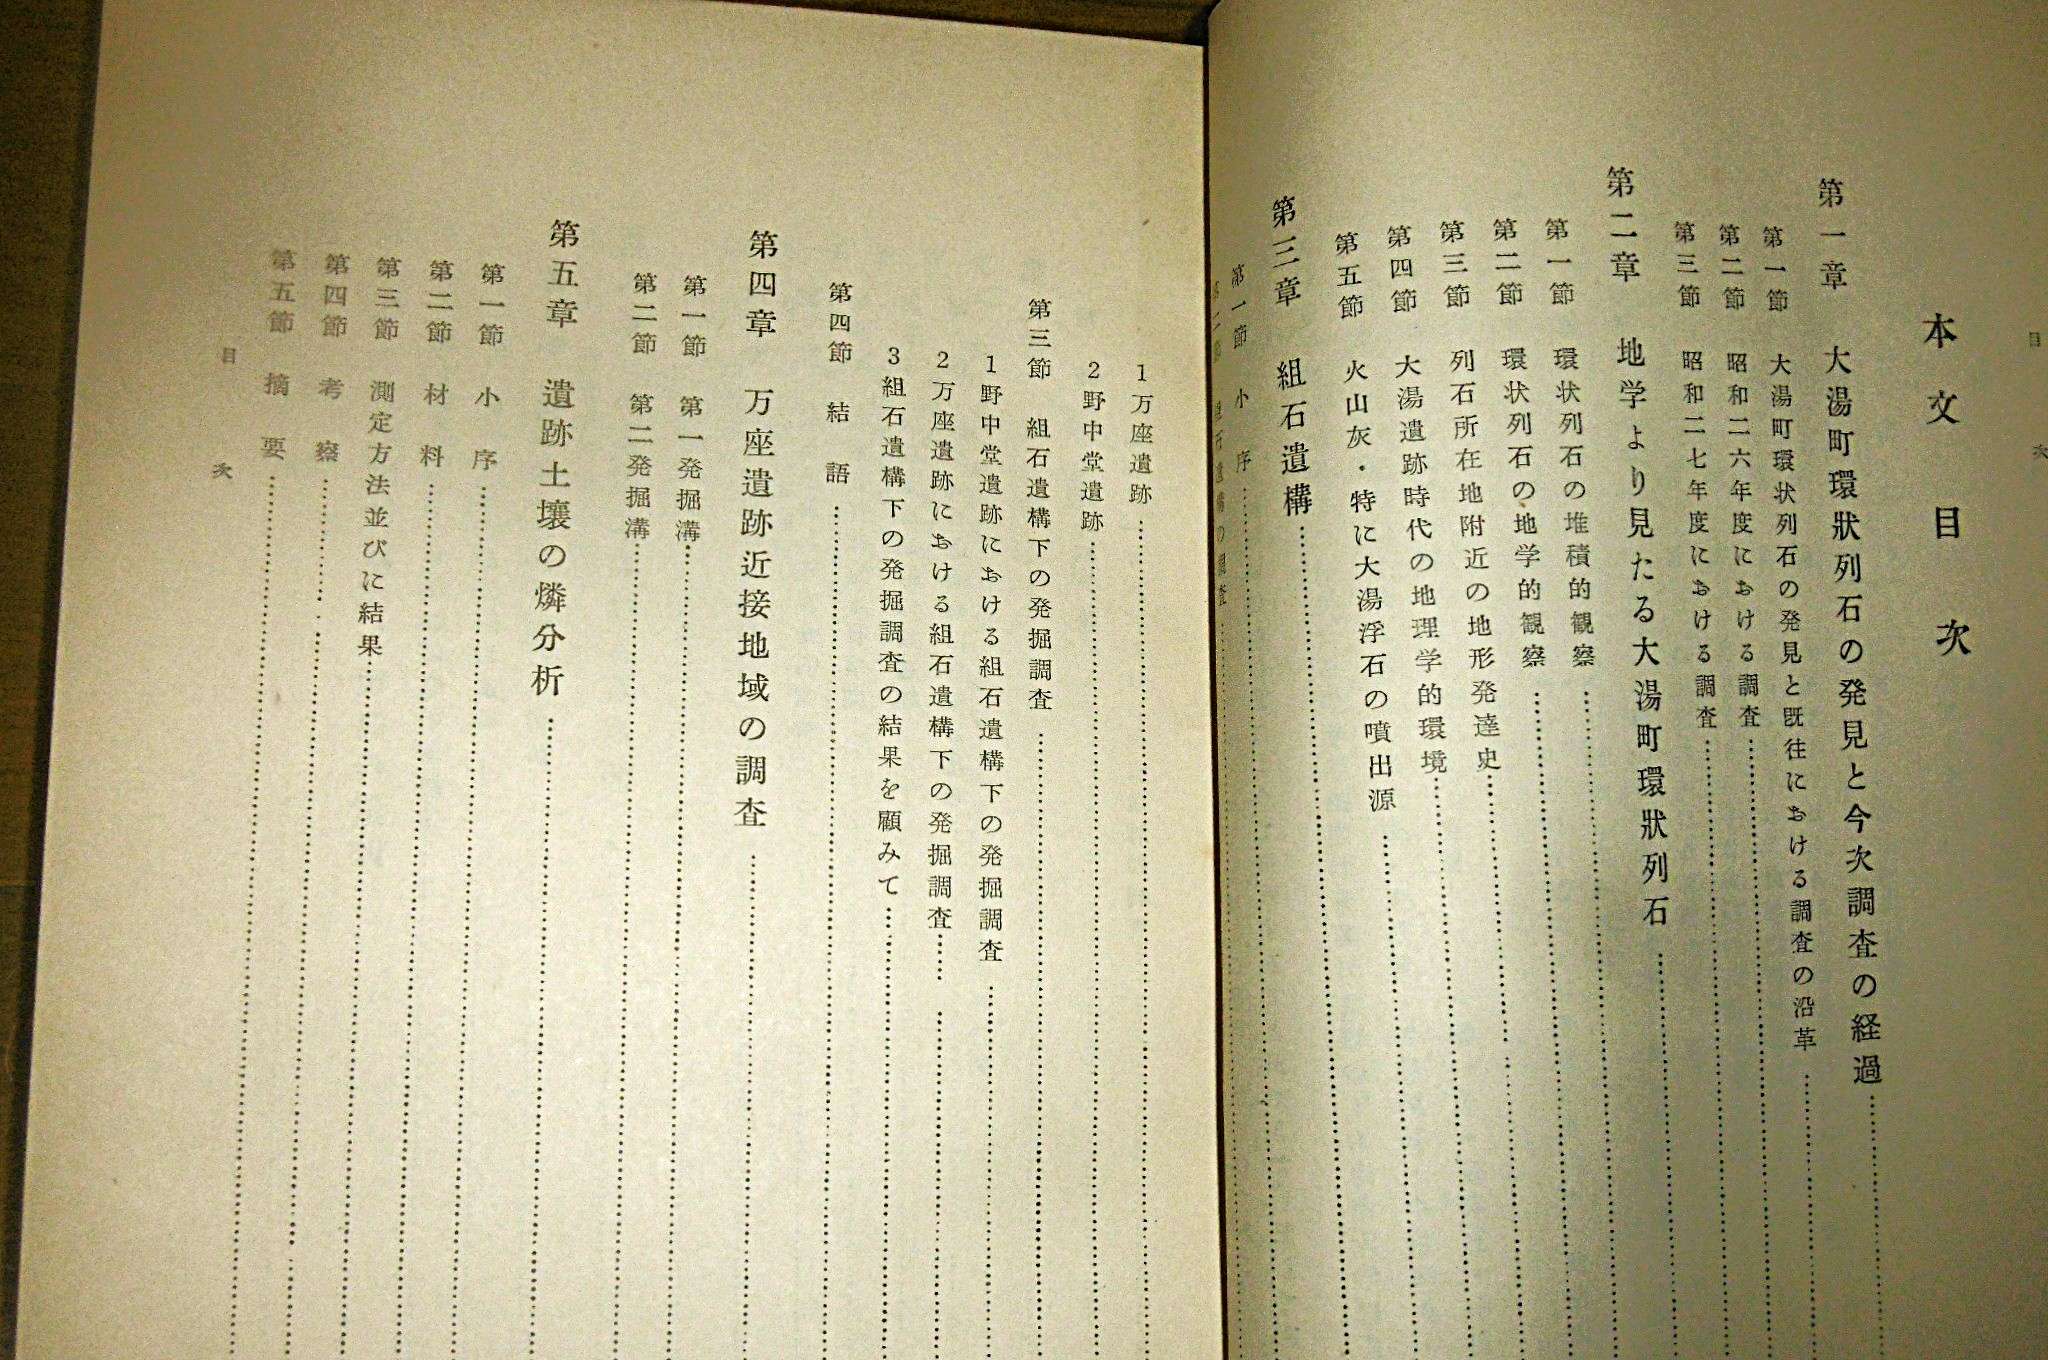 目次
本文目次
第一章 大湯町環狀列石の発見と今次調査の経過
第一節 大湯町環状列石の発見と既往における調査の沿革
第二節 昭和二六年度における調査
第三節 昭和二七年度における調査
第二章 地学より見たる大湯町環狀列石
第一節 環状列石の堆積的観察
第二節 環状列石の地学的観察
第三節 列石所在地附近の地形発達史
第四節 大湯遺跡時代の地理学的環境
第五節 火山灰・特に大湯浮石の噴出源
第三章 組石遺構
第一節 小序
第二節 組石遺構の調査
1万座遺跡
2野中堂遺跡
第三節 組石遺構下の発掘調査
1野中堂遺跡における組石遺構下の発掘調査
2万座遺跡における組石遺構下の発掘調査
3組石遺構下の発掘調査の結果を顧みて
第四節 結語
第四章 万座遺跡近接地域の調査
第一節 第一発掘溝
第二節 第二発掘溝
第五章 遺跡土壤の燐分析
第一節 小序
第二節 材料
第三節 測定方法並びに結果
第四節 考察
第五節 摘要
目次